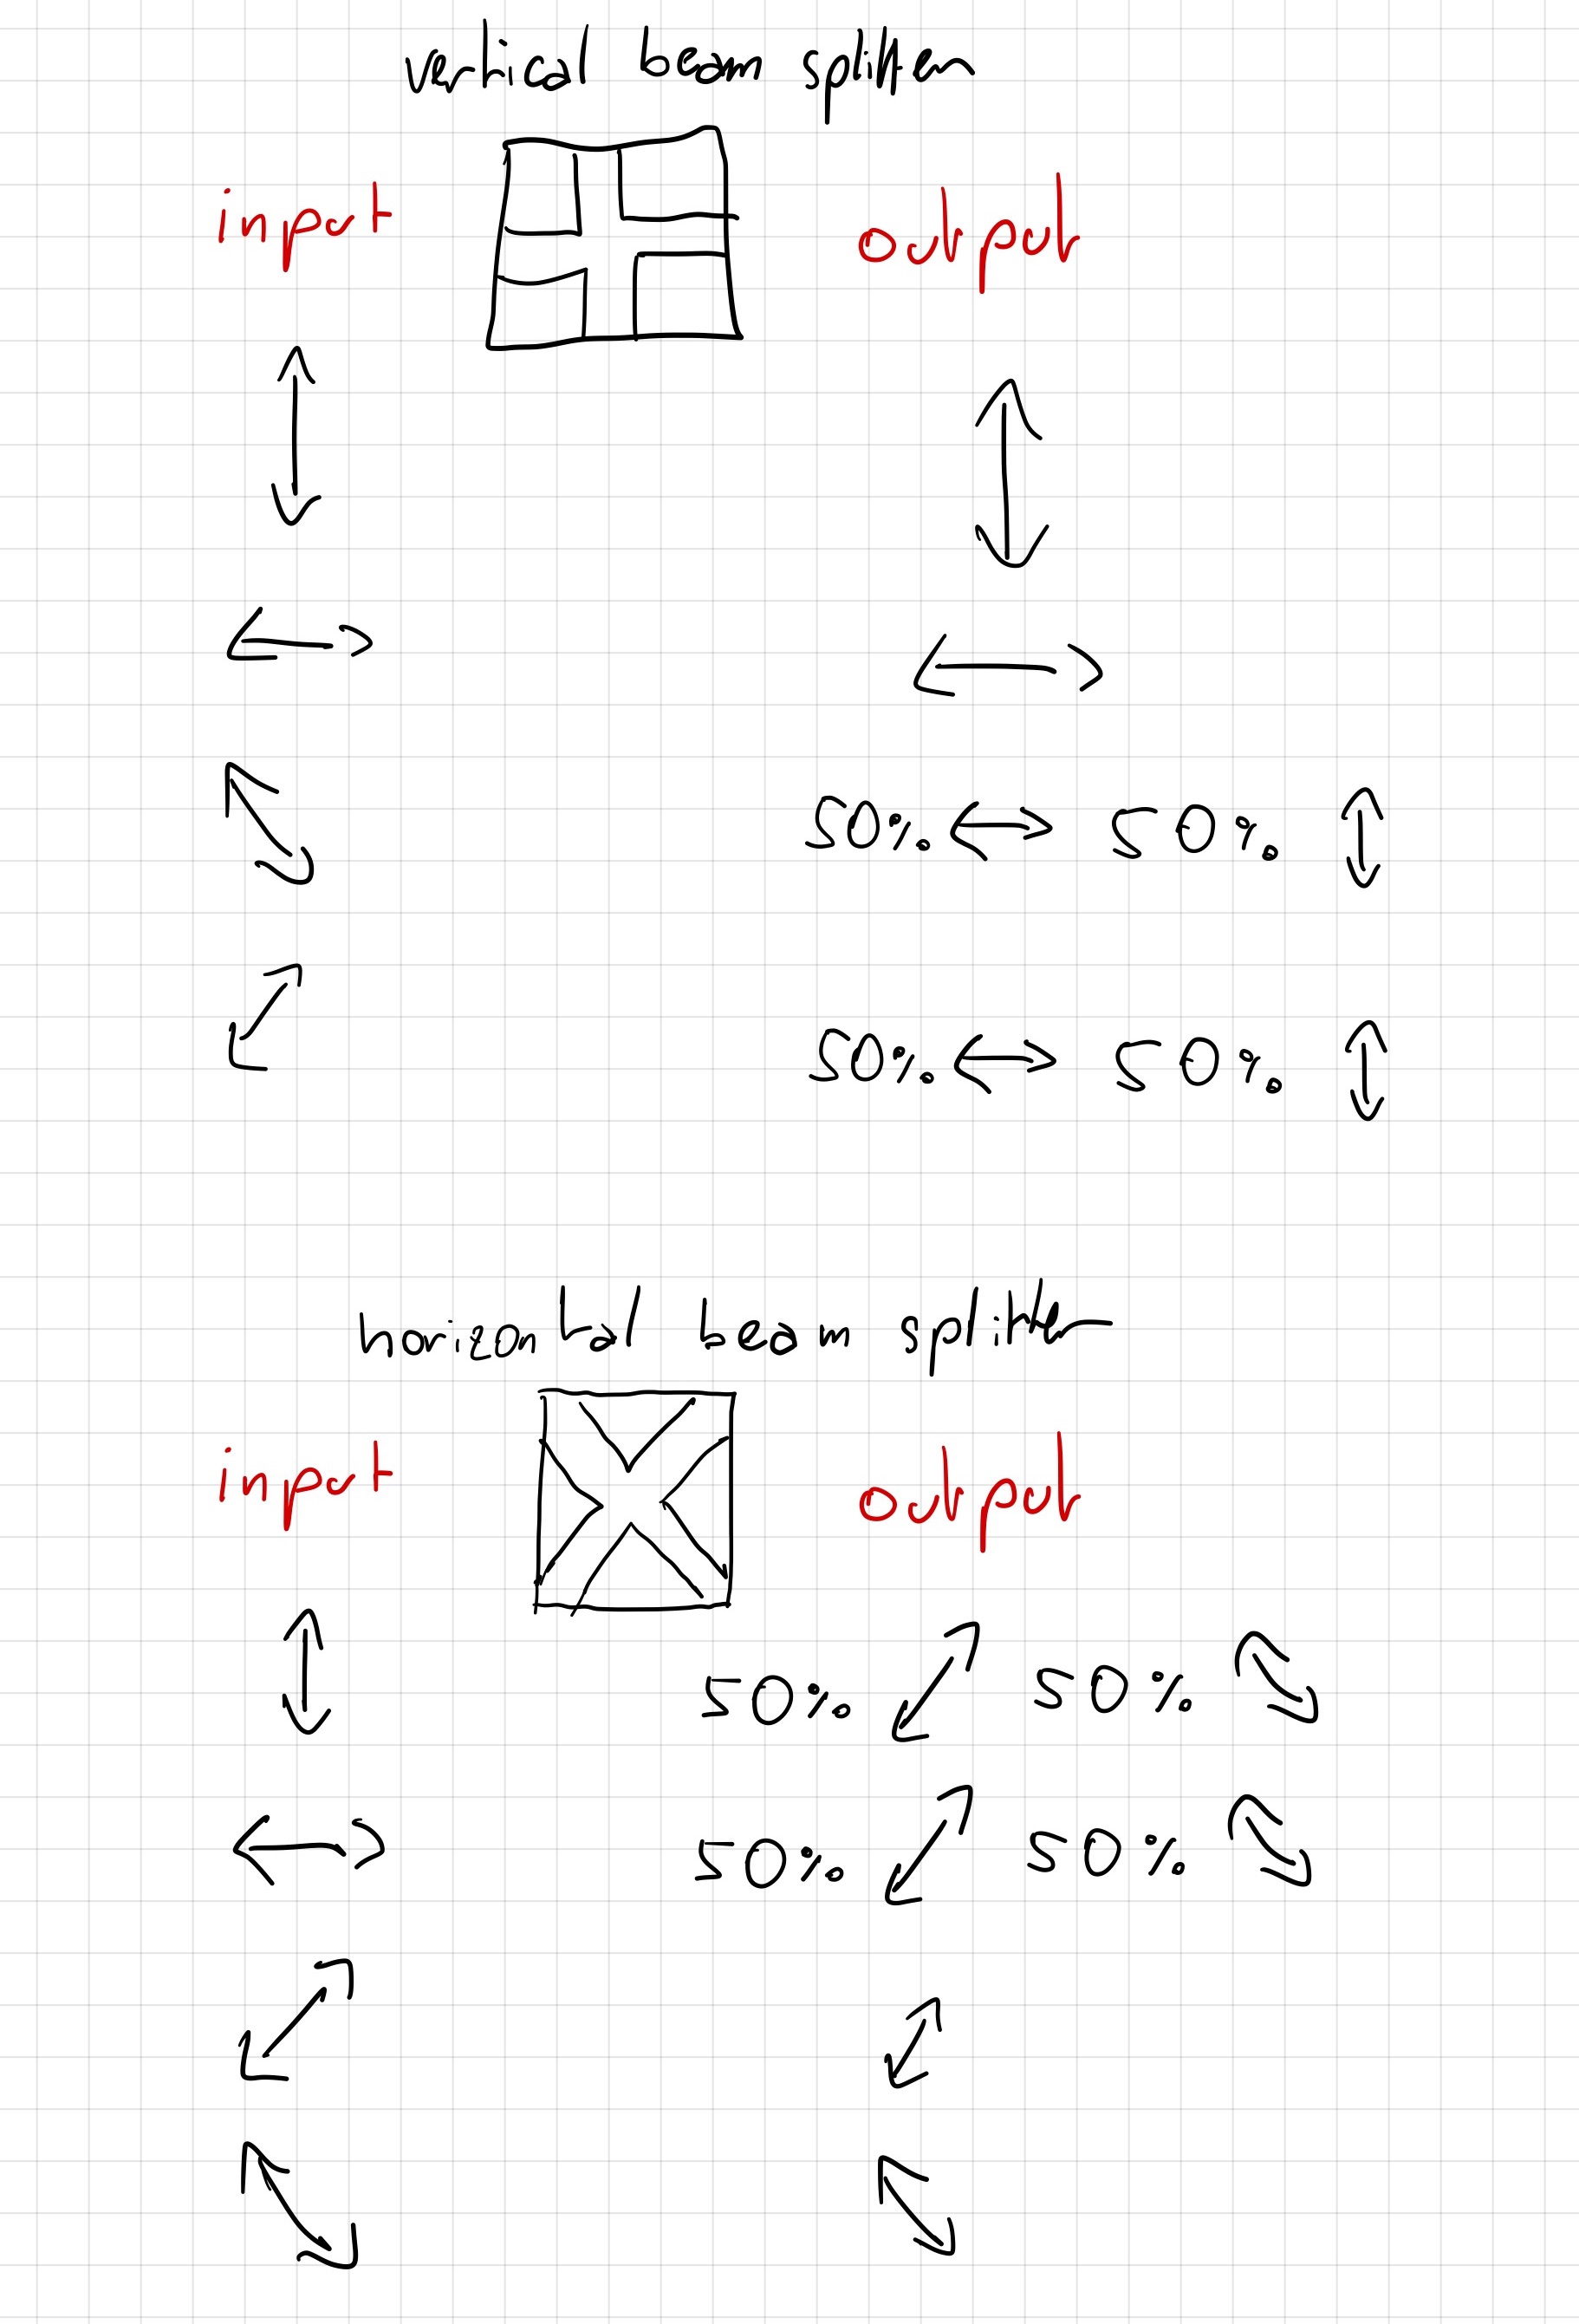 vertical beam splitter
input output
50% 50%
50% 50%
horizontal beam splitter
input output
50% 50%
50% 50%